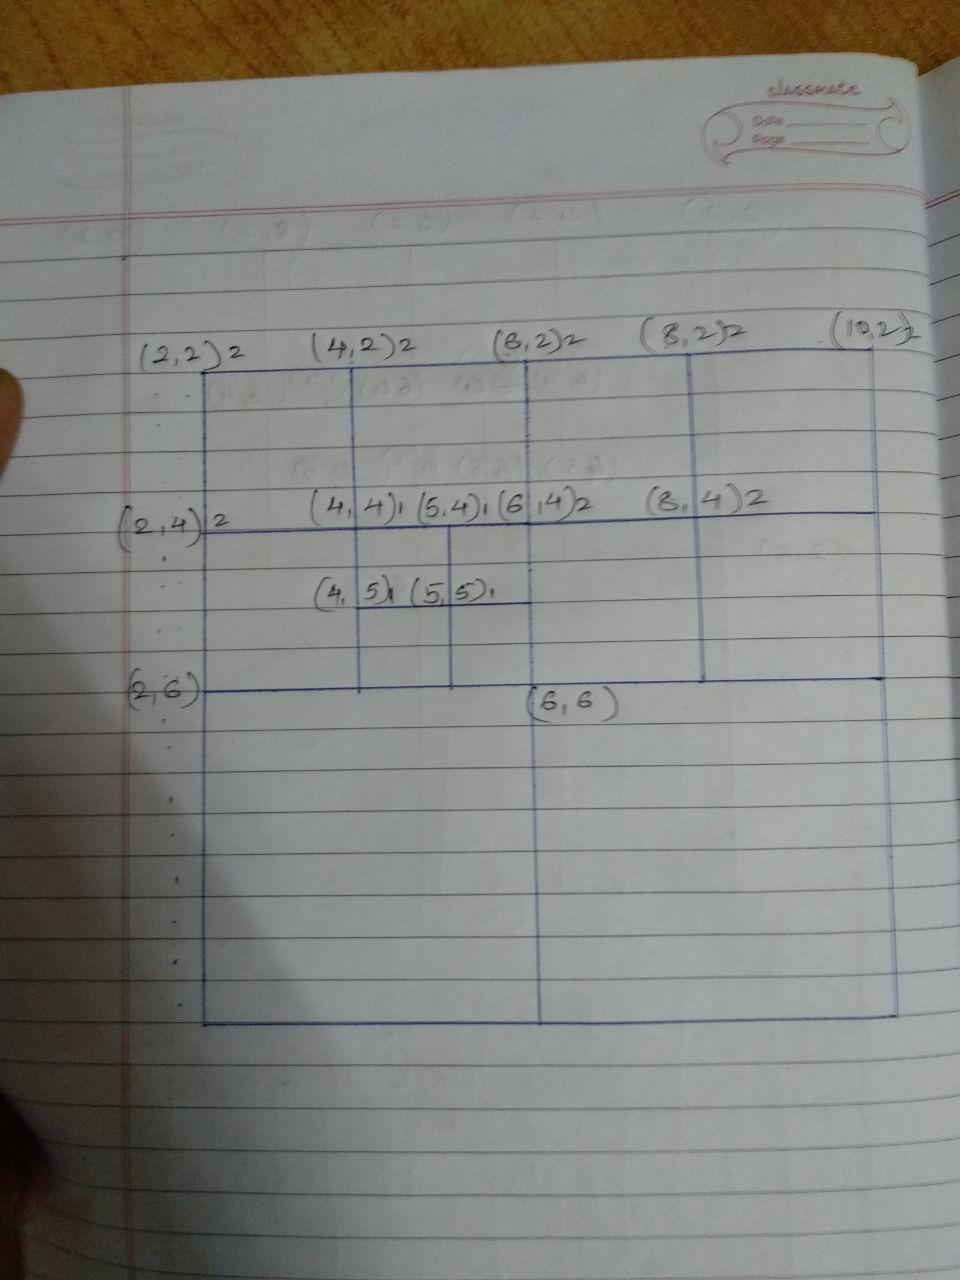 classmate
Date
Page
(2,2)2 (4,2)2 (6,2)2 (8,2)2 (10,2)2
(2,4)2 (4,4)1 (5,4)1 (6,4)2 (8,4)2
(4,5)1 (5,5)1
(2,6) (6,6)